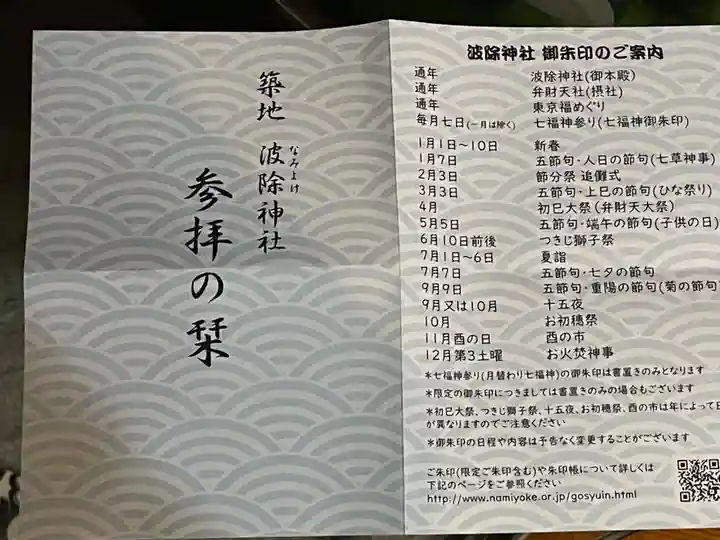 築地 波除神社
なみよけ
参拝の栞
波除神社 御朱印のご案内
通年 波除神社(御本殿)
通年 弁財天社(摂社)
通年 東京福めぐり
毎月七日(一月は除く) 七福神参り(七福神御朱印)
1月1日～10日 新春
1月7日 五節句・人日の節句(七草神事)
2月3日 節分祭 追儺式
3月3日 五節句・上巳の節句(ひな祭り)
4月 初巳大祭(弁財天大祭)
5月5日 五節句・端午の節句(子供の日)
6月10日前後 つきじ獅子祭
7月1日～6日 夏詣
7月7日 五節句・七夕の節句
9月9日 五節句・重陽の節句(菊の節句)
9月又は10月 十五夜
10月 お初穂祭
11月酉の日 酉の市
12月第3土曜 お火焚神事
*七福神参り(月替わり七福神)の御朱印は書置きのみとなります
*限定の御朱印につきましては書置きのみの場合もございます
*初巳大祭、つきじ獅子祭、十五夜、お初穂祭、酉の市は年によって日
が異なりますのでご注意ください
*御朱印の日程や内容は予告なく変更することがございます
ご朱印(限定ご朱印含む)や朱印帳について詳しくは
下記のページをご参照ください
http://www.namiyoke.or.jp/gosyuin.html